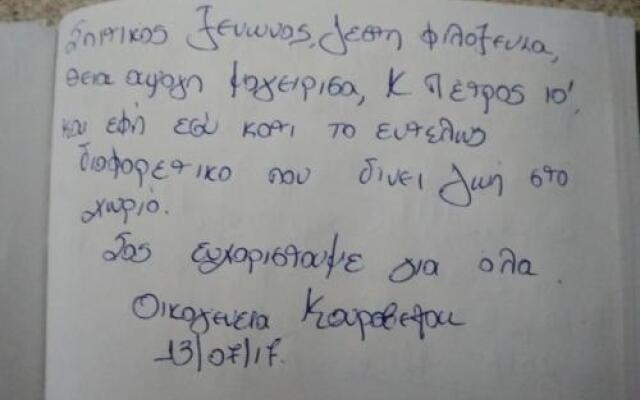 Σπιτικος ξενωνος, ζεστη φιλοξενια,
θεια αψογη μαγειρισα, Κ Πετρος 10',
και εφη εσυ κατι το εντελως
διαφορετικο που δινει ζωή στο
χωριό.
Σας ευχαριστουμε για όλα.
Οικογενεια
13/07/17.